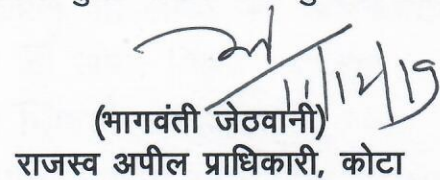 11/12/19
(भागवंती जेठवानी)
राजस्व अपील प्राधिकारी, कोटा